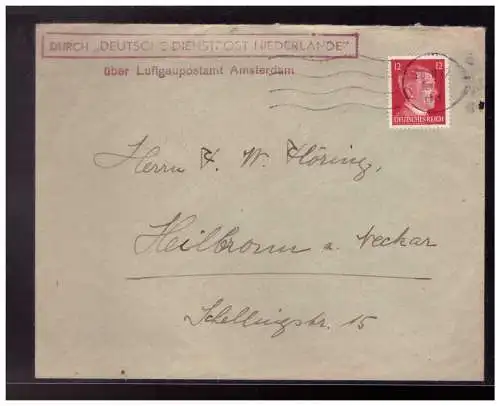 DURCH „DEUTSCHE DIENSTPOST NIEDERLANDE“
über Luftgaupostamt Amsterdam
12 12
DEUTSCHES REICH
Herrn W. Höring,
Heilbronn a. Neckar
Schellingstr. 15